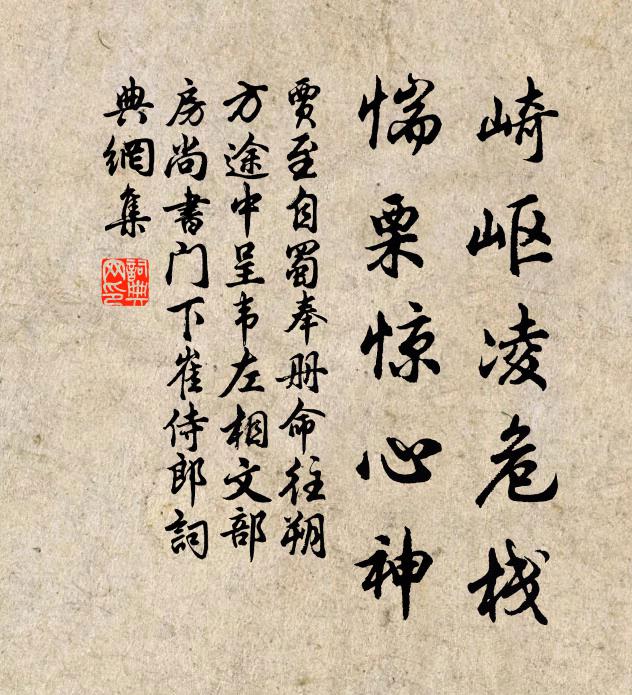 崎岖凌危栈
惴栗惊心神
贾至自蜀奉册命往朔
方途中呈韦左相文部
房尚書门下崔侍郎詞
典網集
詞典
网印